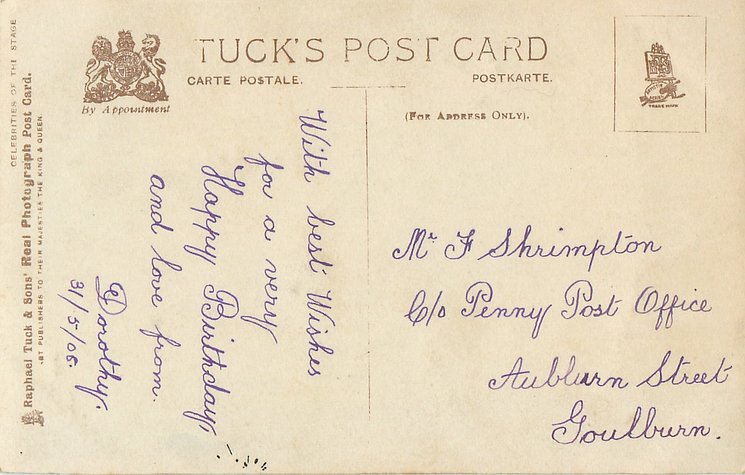 TUCK'S POST CARD
CARTE POSTALE.
POSTKARTE.
By Appointment
(FOR ADDRESS ONLY).
TRADE MARK
CELEBRITIES OF THE STAGE
Raphael Tuck & Sons' Real Photograph Post Card.
ART PUBLISHERS TO THEIR MAJESTIES THE KING & QUEEN.
With best Wishes
for a very
Happy Birthday,
and love from
Dorothy.
31/5/06.
Mr F Shrimpton
C/o Penny Post Office
Aubburn Street
Goulburn.